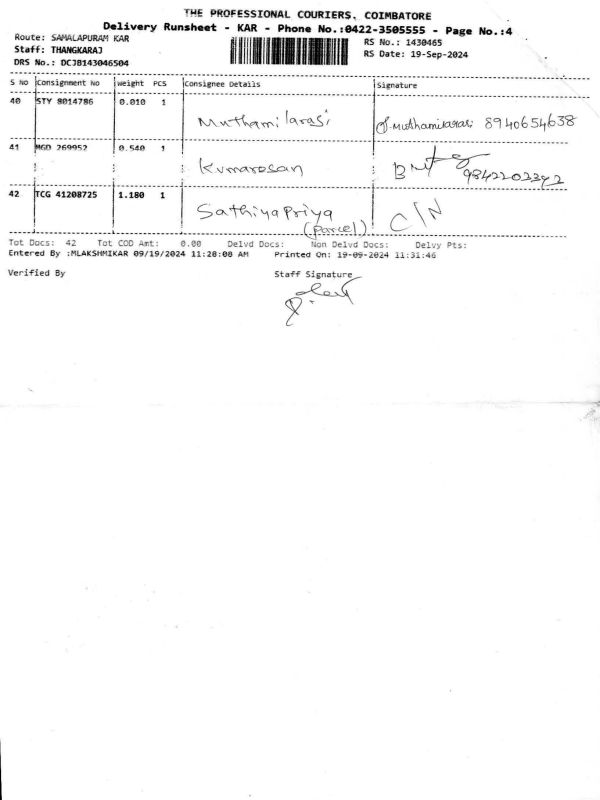 THE PROFESSIONAL COURIERS, COIMBATORE
Delivery Runsheet - KAR - Phone No.:0422-3505555 - Page No.:4
Route: SAMALAPURAM KAR
RS No.: 1430465
Staff: THANGKARAJ
RS Date: 19-Sep-2024
DRS No.: DCJB143046504
S No Consignment No Weight PCS Consignee Details Signature
40 STY 8014786 0.010 1
Muthamilarasi J.Muthamilarasi 8940654638
41 MGD 269952 0.540 1
Kumaresan 9842202392
42 TCG 41208725 1.180 1
Sathiyapriya C/N
(parcel)
Tot Docs: 42 Tot COD Amt: 0.00 Delvd Docs: Non Delvd Docs: Delvy Pts:
Entered By :MLAKSHMIKAR 09/19/2024 11:28:08 AM Printed On: 19-09-2024 11:31:46
Verified By Staff Signature